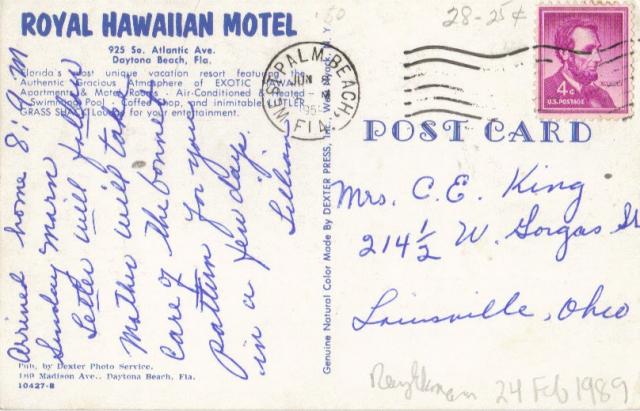 ROYAL HAWAIIAN MOTEL
925 So. Atlantic Ave.
Daytona Beach, Fla.
Florida's most unique vacation resort featuring the
Authentic Gracious Atmosphere of EXOTIC HAWAII
Apartments & Motel Rooms - Air-Conditioned & Heated -
Swimming Pool - Coffee Shop, and inimitable
GRASS SHACK Lounge for your entertainment.
Arrived home 8: P.M
Sunday morn
Letter will follow
Mother will take
care of the bonnet
pattern for you
in a few days.
Lillian
Pub. by Dexter Photo Service.
169 Madison Ave., Daytona Beach, Fla.
10427-B
Genuine Natural Color Made By DEXTER PRESS, INC. West Nyack, N. Y.
'50
28-25¢
WEST PALM BEACH, FLA.
JUN
195
4¢
U.S. POSTAGE
POST CARD
Mrs. C. E. King
214 1/2 W. Gorgas St
Louisville, Ohio
24 Feb 1989